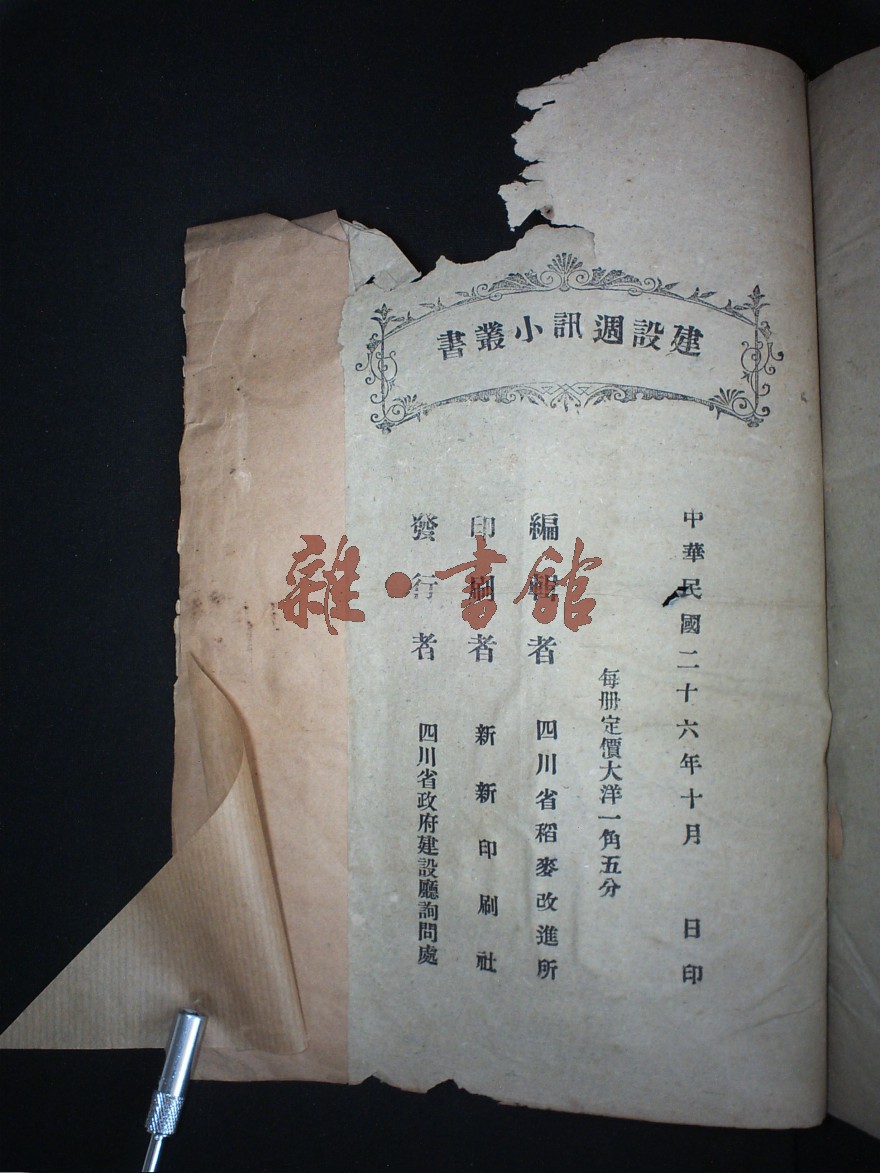 建設週訊小叢書
中華民國二十六年十月　日印
每冊定價大洋一角五分
編輯者　四川省稻麥改進所
印刷者　新新印刷社
發行者　四川省政府建設廳詢問處
雜·書館